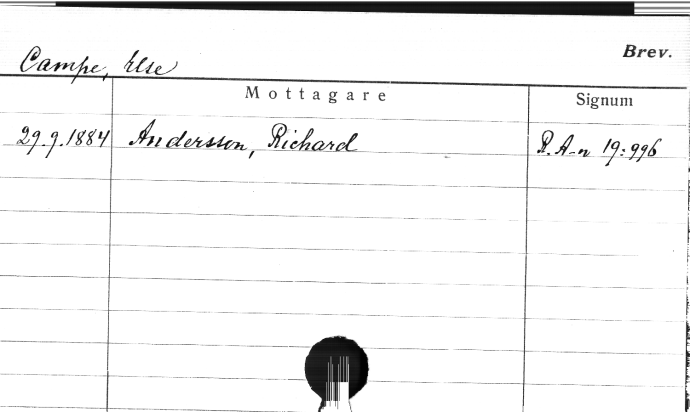 Brev.
Campe, Else
Mottagare Signum
29.9.1884 Andersson, Richard R.A-n 19:996